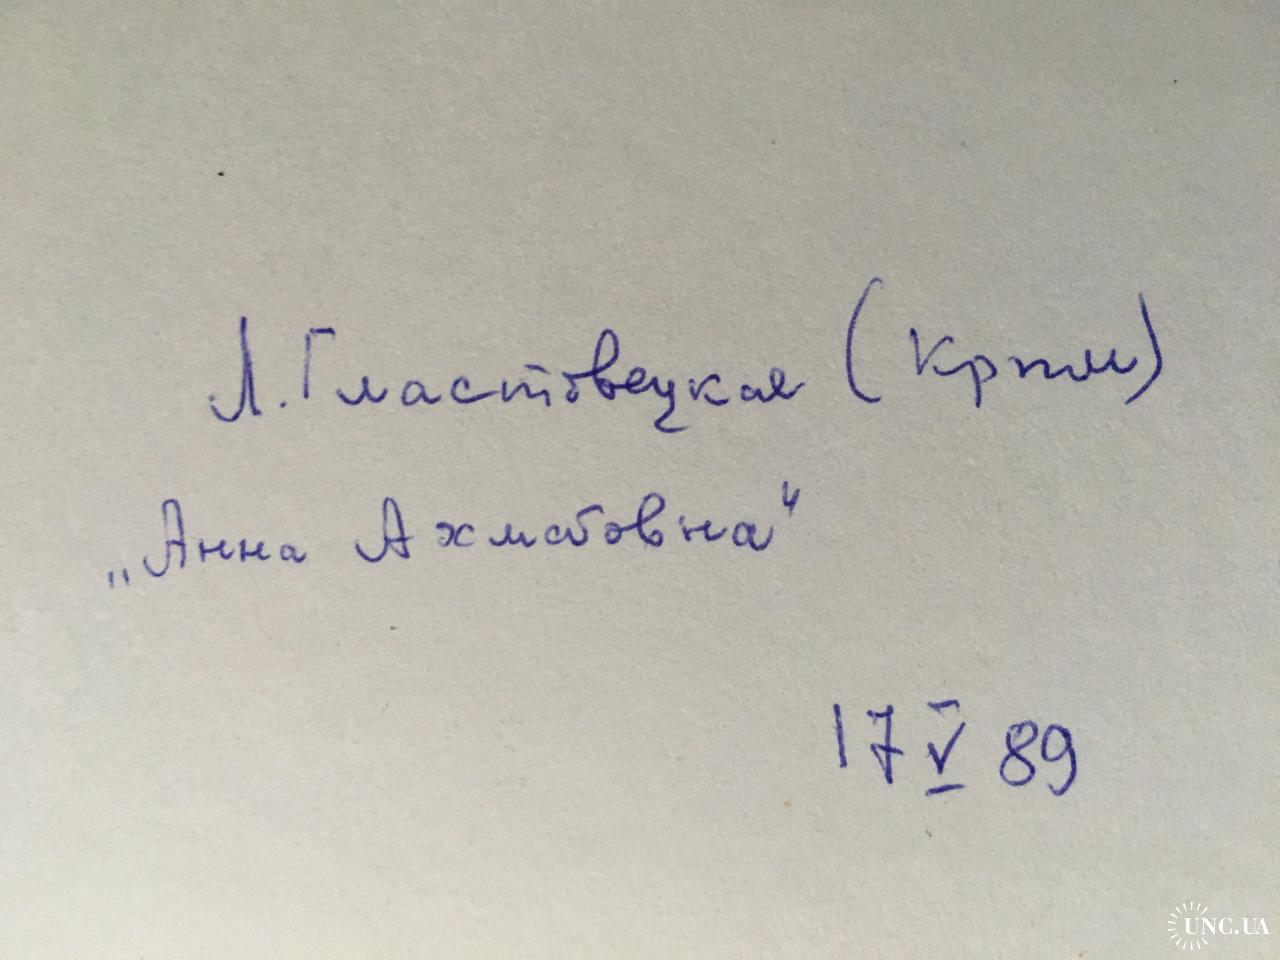 Л. Гластовецкая (Крым)
„Анна Ахматовна"
17 V 89
UNC.UA